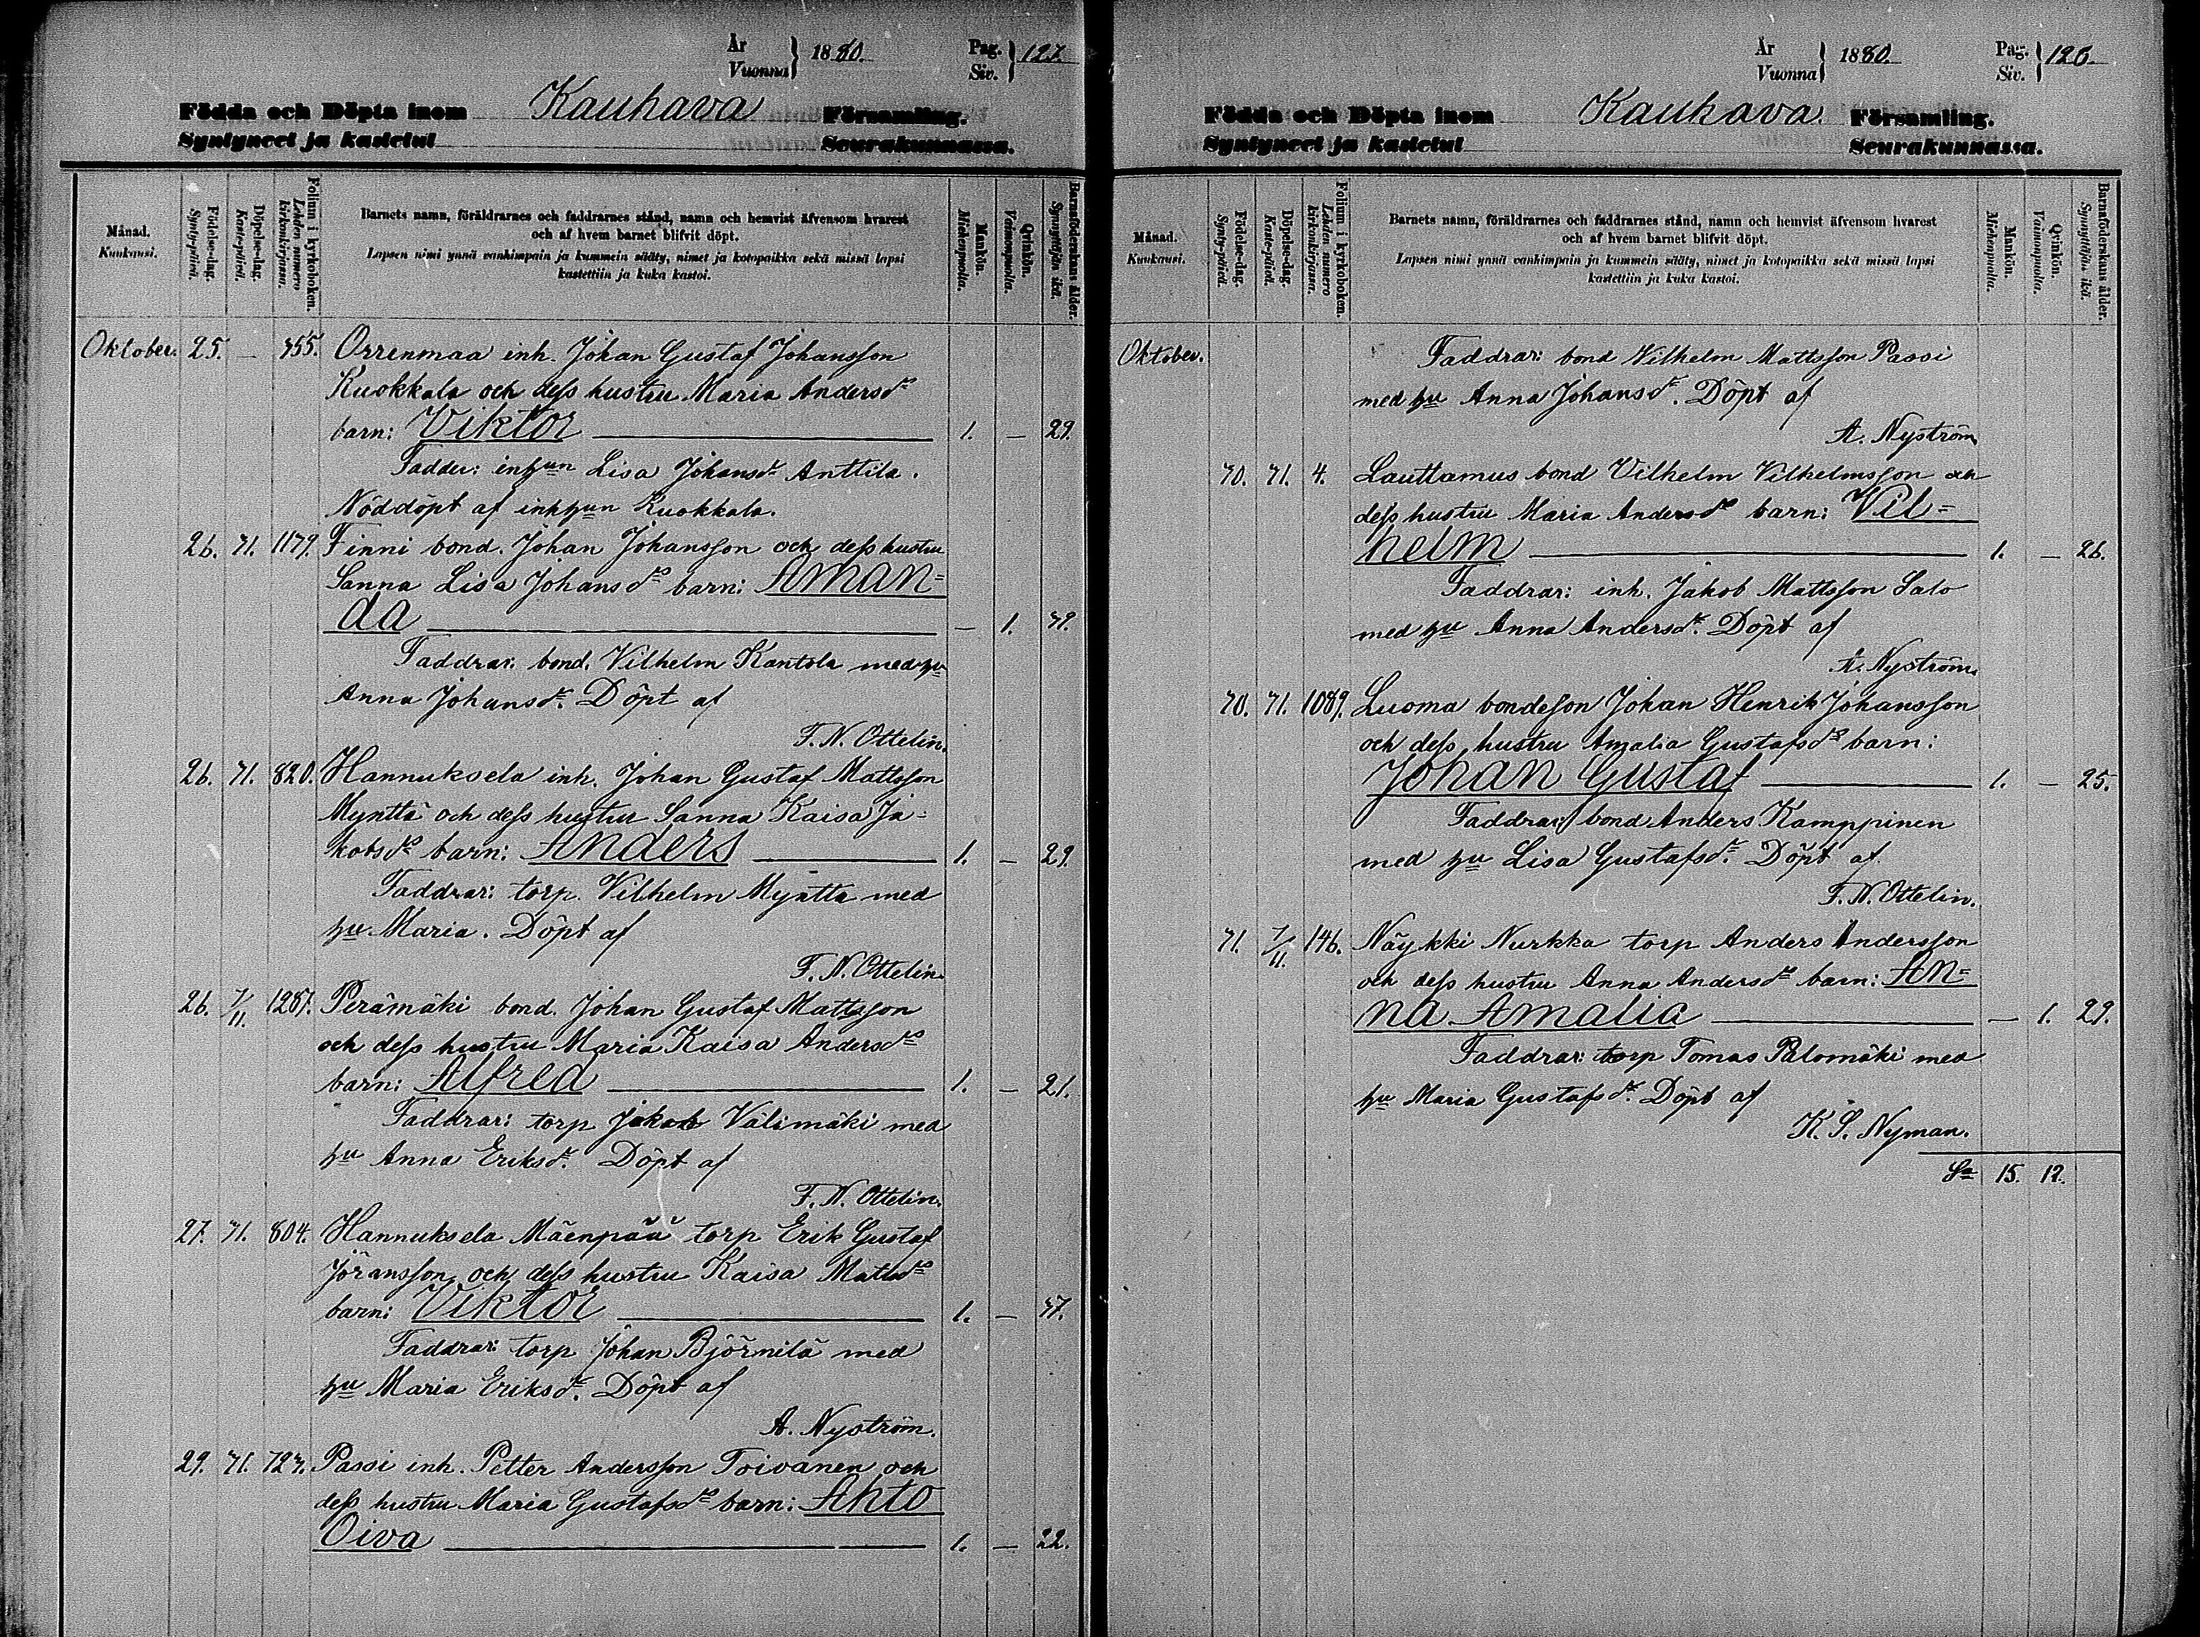 År
Vuonna 1880.
Pag.
Siv. 127.
Födda och Döpta inom Kauhava Församling.
Syntyneet ja kastetut Seurakunnassa.
Månad.
Kuukausi.
Födelse-dag.
Synty-päivä.
Döpelse-dag.
Kaste-päivä.
Folium i kyrkoboken.
Lehden numero kirkonkirjassa.
Barnets namn, föräldrarnes och faddrarnes stånd, namn och hemvist äfvensom hvarest
och af hvem barnet blifvit döpt.
Lapsen nimi ynnä vanhimpain ja kummein sääty, nimet ja kotopaikka sekä missä lapsi
kastettiin ja kuka kastoi.
Mankön.
Miehenpuolia.
Qvinkön.
Vaimonpuolia.
Barnaföderskans ålder.
Synnyttäjän ikä.
Oktober. 25. — 755. Orrenmaa inh. Johan Gustaf Johansson
Kuokkala och dess hustru Maria Andersdr
barn: Viktor 1. — 29.
Fadder: inhun Lisa Johansdr Anttila.
Nöddöpt af inhhun Kuokkala.
26. 31. 1179. Finni bond. Johan Johansson och dess hustru
Sanna Lisa Johansdrs barn: Aman-
da — 1. 39.
Faddrar: bond. Vilhelm Kantola med hu
Anna Johansdr. Döpt af
F. N. Ottelin.
26. 31. 820. Hannuksela inh. Johan Gustaf Mattsson
Mynttä och dess hustru Sanna Kaisa Ja-
kobsdrs barn: Anders 1. — 29
Faddrar: torp. Vilhelm Mynttä med
hu Maria. Döpt af
F. N. Ottelin.
26. 7/11. 1287. Perämäki bond. Johan Gustaf Mattsson
och dess hustru Maria Kaisa Andersdrs
barn: Alfred 1. — 21.
Faddrar: torp Jakob Välimäki med
hu Anna Eriksdr. Döpt af
F. N. Ottelin.
27. 31. 804. Hannuksela Mäenpää torp Erik Gustaf
Jöransson och dess hustru Kaisa Mattsdrs
barn: Viktor 1. — 37.
Faddrar: torp Johan Björnilä med
hu Maria Eriksdr. Döpt af
A. Nyström.
29. 31. 723. Passi inh. Petter Andersson Toivanen och
dess hustru Maria Gustafsdrs barn: Ahto
Oiva 1. — 22.
År
Vuonna 1880.
Pag.
Siv. 128.
Födda och Döpta inom Kauhava. Församling.
Syntyneet ja kastetut Seurakunnassa.
Månad.
Kuukausi.
Födelse-dag.
Synty-päivä.
Döpelse-dag.
Kaste-päivä.
Folium i kyrkoboken.
Lehden numero kirkonkirjassa.
Barnets namn, föräldrarnes och faddrarnes stånd, namn och hemvist äfvensom hvarest
och af hvem barnet blifvit döpt.
Lapsen nimi ynnä vanhimpain ja kummein sääty, nimet ja kotopaikka sekä missä lapsi
kastettiin ja kuka kastoi.
Mankön.
Miehenpuolia.
Qvinkön.
Vaimonpuolia.
Barnaföderskans ålder.
Synnyttäjän ikä.
Oktober. Faddrar: bond Vilhelm Mattsson Passi
med hu Anna Johansdr. Döpt af
A. Nyström
30. 31. 4. Lauttamus bond Vilhelm Vilhelmsson och
dess hustru Maria Andersdrs barn: Vil-
helm 1. — 26.
Faddrar: inh. Jakob Mattsson Salo
med hu Anna Andersdr. Döpt af
A. Nyström.
30. 31. 1089. Luoma bondeson Johan Henrik Johansson
och dess hustru Amalia Gustafsdrs barn:
Johan Gustaf 1. — 25.
Faddrar: bond Anders Kamppinen
med hu Lisa Gustafsdr. Döpt af
F. N. Ottelin.
31. 7/11. 146. Näykki Nurkka torp Anders Andersson
och dess hustru Anna Andersdrs barn: An-
na Amalia — 1. 29.
Faddrar: torp Tomas Palomäki med
hu Maria Gustafsdr. Döpt af
K. S. Nyman.
Sa 15. 12.